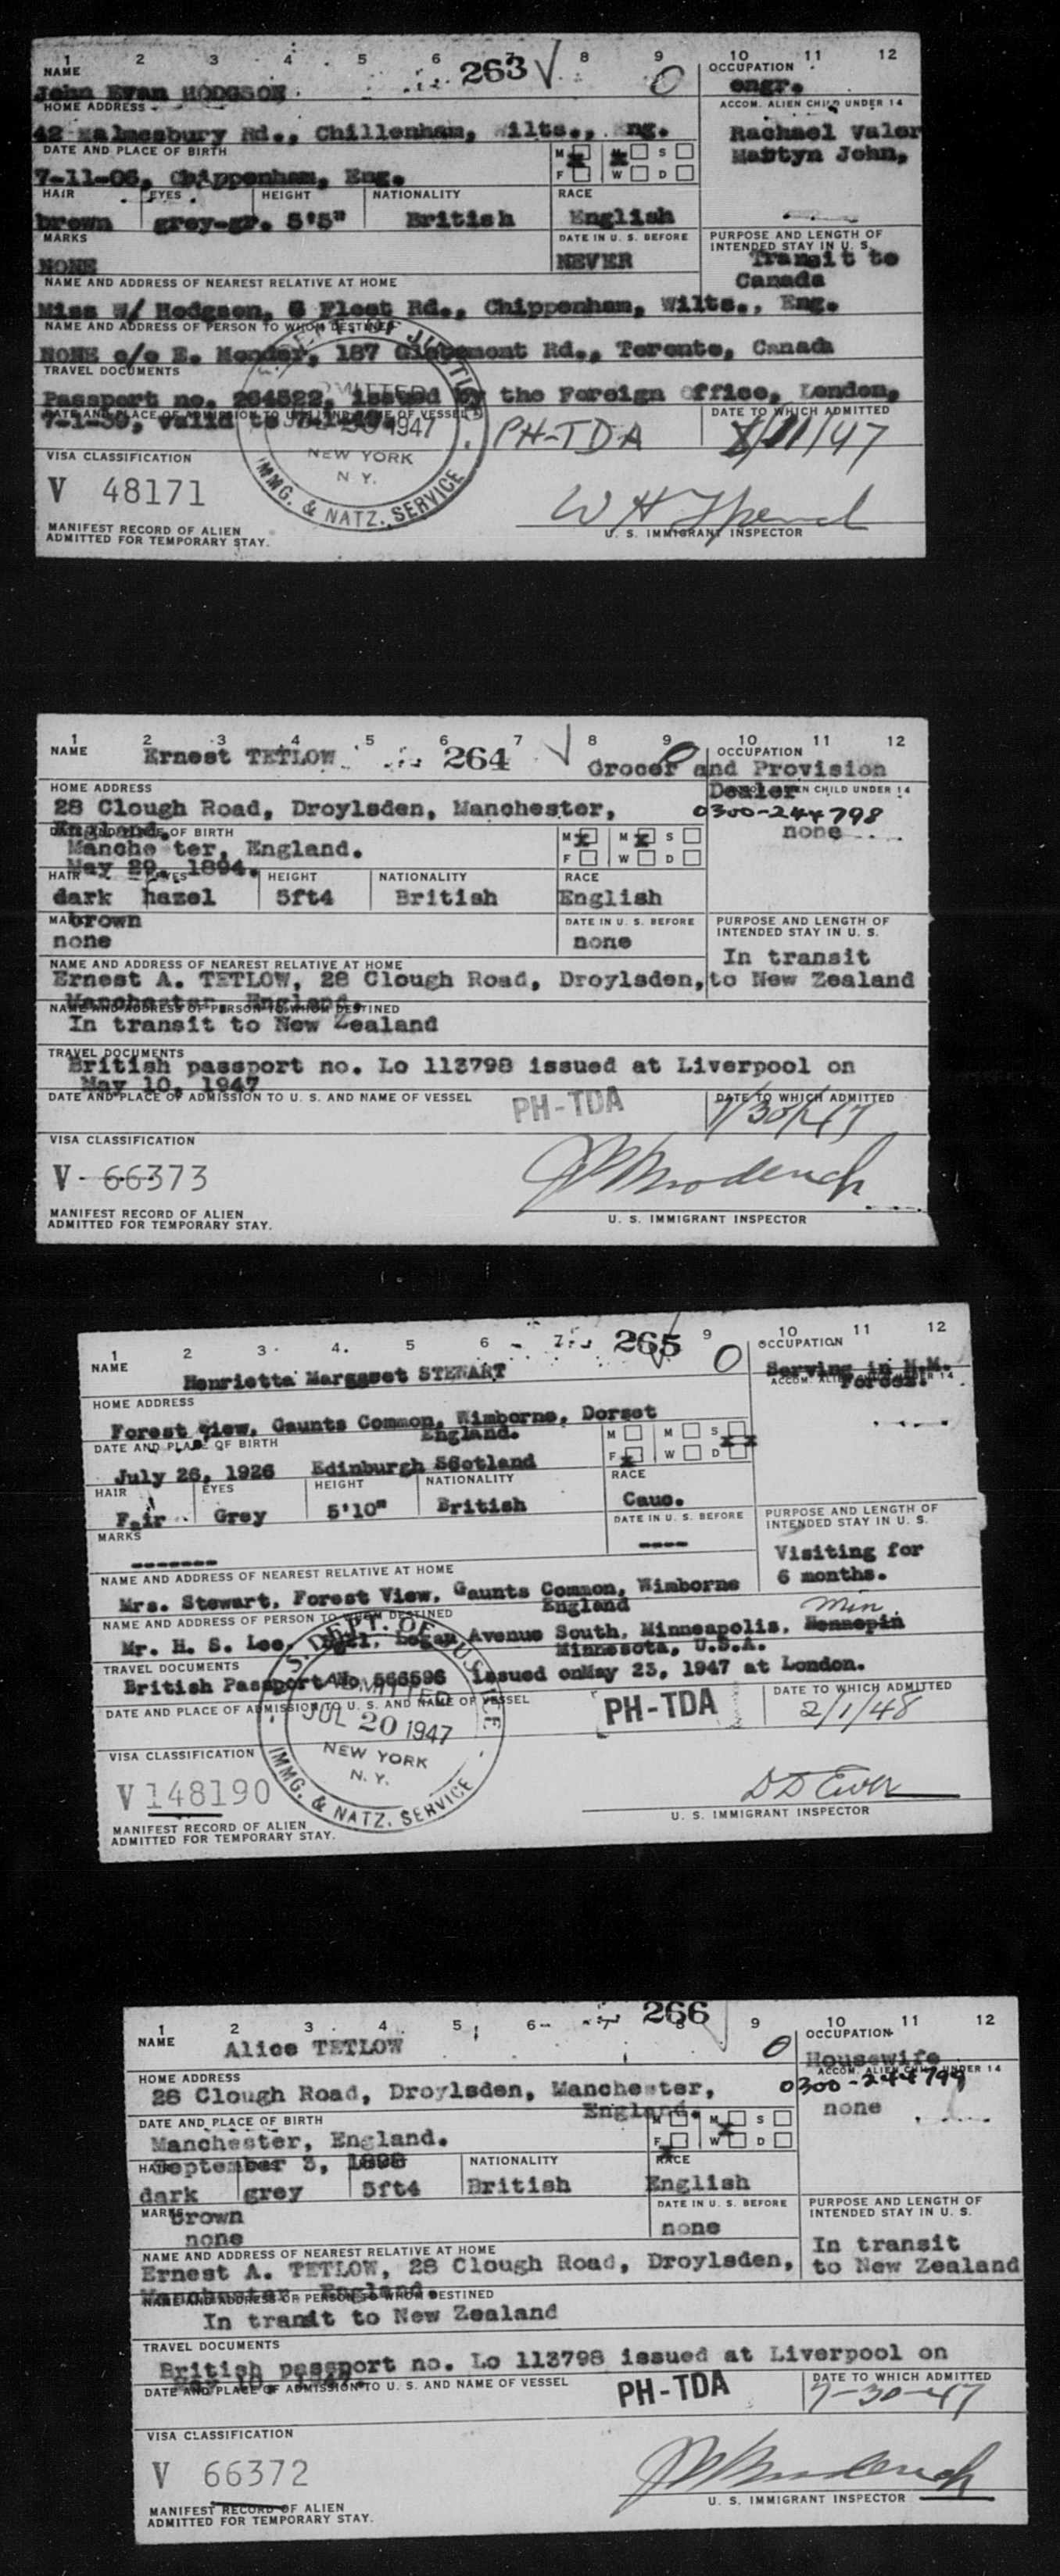 1 2 3 4 5 6 7 8 9 10 11 12
263
NAME
OCCUPATION
John Evan HODGSON
engr.
HOME ADDRESS
ACCOM. ALIEN CHILD UNDER 14
42 Malmesbury Rd., Chillenham, Wilts., Eng.
Rachael Valer
DATE AND PLACE OF BIRTH
M M S
Martyn John,
7-11-06, Chippenham, Eng.
F W D
HAIR EYES HEIGHT NATIONALITY RACE
brown grey-gr. 5'5" British English
MARKS
DATE IN U. S. BEFORE
PURPOSE AND LENGTH OF
INTENDED STAY IN U. S.
NONE NEVER
Transit to
Canada
NAME AND ADDRESS OF NEAREST RELATIVE AT HOME
Miss W/ Hodgson, 8 Fleet Rd., Chippenham, Wilts., Eng.
NAME AND ADDRESS OF PERSON TO WHOM DESTINED
NONE c/o E. 187 Rd., Toronto, Canada
TRAVEL DOCUMENTS
Passport no. 264522, issued by the Foreign Office, London,
7-1-39, valid to
DATE AND PLACE OF ADMISSION TO U. S. AND NAME OF VESSEL
DATE TO WHICH ADMITTED
ADMITTED
1947
NEW YORK
N. Y.
IMMG. & NATZ. SERVICE
PH-TDA
/47
VISA CLASSIFICATION
V 48171
MANIFEST RECORD OF ALIEN
ADMITTED FOR TEMPORARY STAY.
U. S. IMMIGRANT INSPECTOR
1 2 3 4 5 6 7 8 9 10 11 12
NAME
Ernest TETLOW
264
OCCUPATION
Grocer and Provision
Dealer
HOME ADDRESS
ACCOM. ALIEN CHILD UNDER 14
28 Clough Road, Droylsden, Manchester,
0300-244798
England.
none
DATE AND PLACE OF BIRTH
M M S
Manche ter, England.
F W D
May 29, 1894.
HAIR EYES HEIGHT NATIONALITY RACE
dark hazel 5ft4 British English
brown
MARKS
DATE IN U. S. BEFORE
PURPOSE AND LENGTH OF
INTENDED STAY IN U. S.
none none
In transit
NAME AND ADDRESS OF NEAREST RELATIVE AT HOME
Ernest A. TETLOW, 28 Clough Road, Droylsden, to New Zealand
Manchester, England.
NAME AND ADDRESS OF PERSON TO WHOM DESTINED
In transit to New Zealand
TRAVEL DOCUMENTS
British passport no. Lo 113798 issued at Liverpool on
May 10, 1947
DATE AND PLACE OF ADMISSION TO U. S. AND NAME OF VESSEL
DATE TO WHICH ADMITTED
PH-TDA
7/30/47
VISA CLASSIFICATION
V 66373
MANIFEST RECORD OF ALIEN
ADMITTED FOR TEMPORARY STAY.
U. S. IMMIGRANT INSPECTOR
1 2 3 4 5 6 7 9 10 11 12
265
NAME
OCCUPATION
Henrietta Margaret STEWART
Serving in H.M.
Forces.
HOME ADDRESS
ACCOM. ALIEN CHILD UNDER 14
Forest View, Gaunts Common, Wimborne, Dorset
England.
DATE AND PLACE OF BIRTH
M M S
July 26, 1926 Edinburgh Scotland
F W D
HAIR EYES HEIGHT NATIONALITY RACE
Fair Grey 5'10" British Cauc.
MARKS
DATE IN U. S. BEFORE
PURPOSE AND LENGTH OF
INTENDED STAY IN U. S.
------- ----
Visiting for
6 months.
NAME AND ADDRESS OF NEAREST RELATIVE AT HOME
Mrs. Stewart, Forest View, Gaunts Common, Wimborne
England
NAME AND ADDRESS OF PERSON TO WHOM DESTINED
Min.
Mr. H. S. Lee, Logan Avenue South, Minneapolis, Hennepin
Minnesota, U.S.A.
TRAVEL DOCUMENTS
British Passport No 566596 issued onMay 23, 1947 at London.
DATE AND PLACE OF ADMISSION TO U. S. AND NAME OF VESSEL
DATE TO WHICH ADMITTED
U. S. DEPT. OF JUSTICE
ADMITTED
JUL 20 1947
NEW YORK
N. Y.
IMMG. & NATZ. SERVICE
PH-TDA
2/1/48
VISA CLASSIFICATION
V 148190
MANIFEST RECORD OF ALIEN
ADMITTED FOR TEMPORARY STAY.
U. S. IMMIGRANT INSPECTOR
1 2 3 4 5 6 7 8 9 10 11 12
266
NAME
Alice TETLOW
OCCUPATION
Housewife
HOME ADDRESS
ACCOM. ALIEN CHILD UNDER 14
28 Clough Road, Droylsden, Manchester,
0300-244799
England.
none
DATE AND PLACE OF BIRTH
M M S
Manchester, England.
F W D
September 3, 1898
HAIR NATIONALITY RACE
dark grey 5ft4 British English
brown
MARKS
DATE IN U. S. BEFORE
PURPOSE AND LENGTH OF
INTENDED STAY IN U. S.
none none
In transit
NAME AND ADDRESS OF NEAREST RELATIVE AT HOME
Ernest A. TETLOW, 28 Clough Road, Droylsden, to New Zealand
Manchester, England.
NAME AND ADDRESS OF PERSON TO WHOM DESTINED
In tranit to New Zealand
TRAVEL DOCUMENTS
British passport no. Lo 113798 issued at Liverpool on
May 10, 1947.
DATE AND PLACE OF ADMISSION TO U. S. AND NAME OF VESSEL
DATE TO WHICH ADMITTED
PH-TDA
7-30-47
VISA CLASSIFICATION
V 66372
MANIFEST RECORD OF ALIEN
ADMITTED FOR TEMPORARY STAY.
U. S. IMMIGRANT INSPECTOR